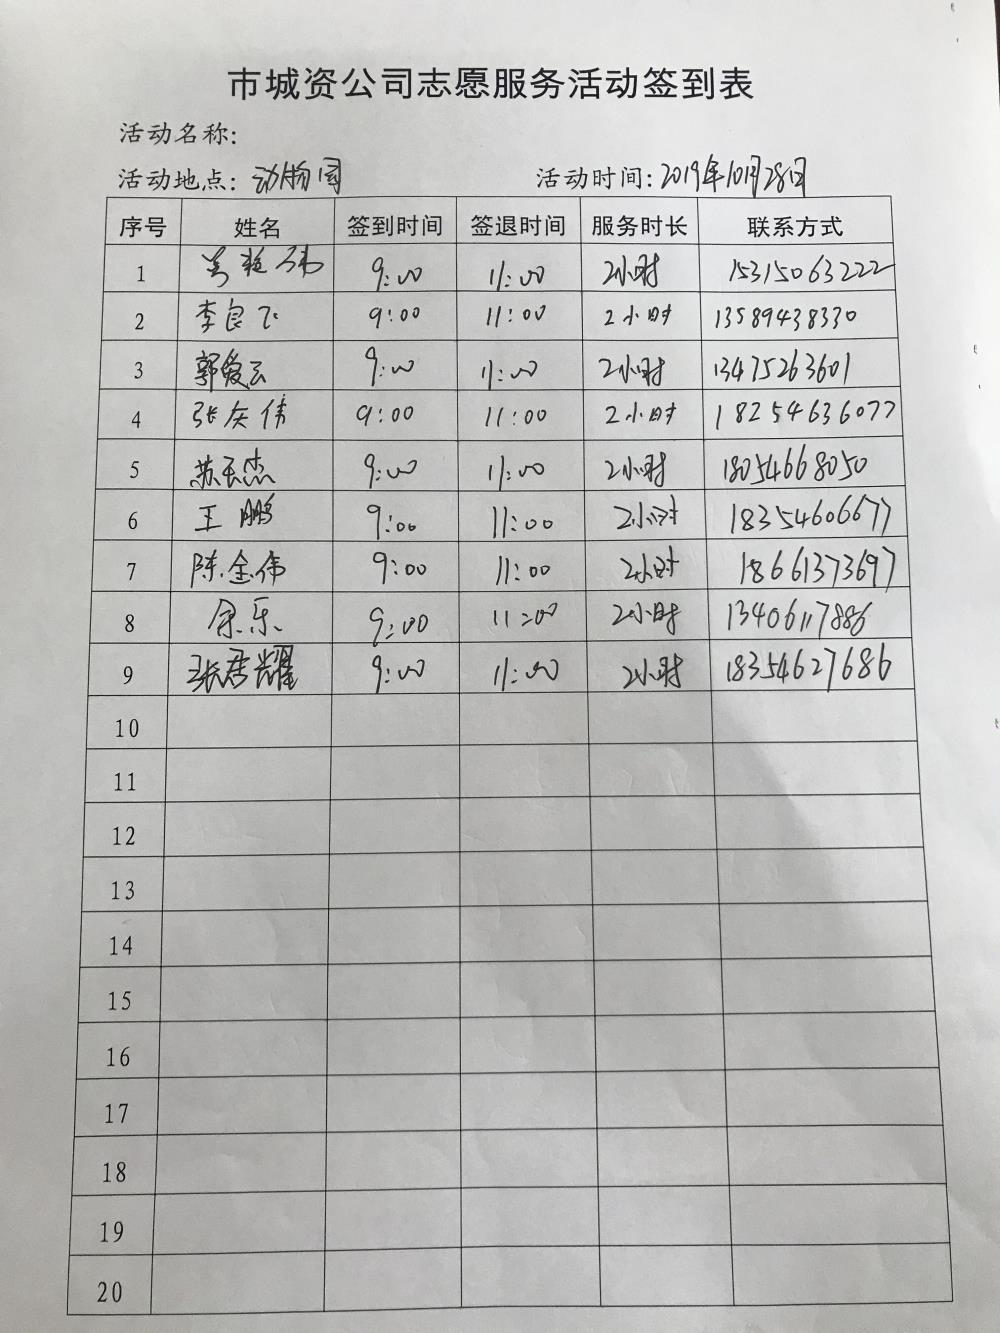 市城资公司志愿服务活动签到表
活动名称:
活动地点: 动物园 活动时间: 2019年10月28日
序号 姓名 签到时间 签退时间 服务时长 联系方式
1 9:00 11:00 2小时 15315063222
2 李良飞 9:00 11:00 2小时 13589438330
3 郭爱云 9:00 11:00 2小时 13475263601
4 张庆伟 9:00 11:00 2小时 18254636077
5 苏天杰 9:00 11:00 2小时 18054668050
6 王鹏 9:00 11:00 2小时 18354606677
7 陈金伟 9:00 11:00 2小时 18661373697
8 乐 9:00 11:00 2小时 13406117886
9 张君耀 9:00 11:00 2小时 18354627686
10
11
12
13
14
15
16
17
18
19
20